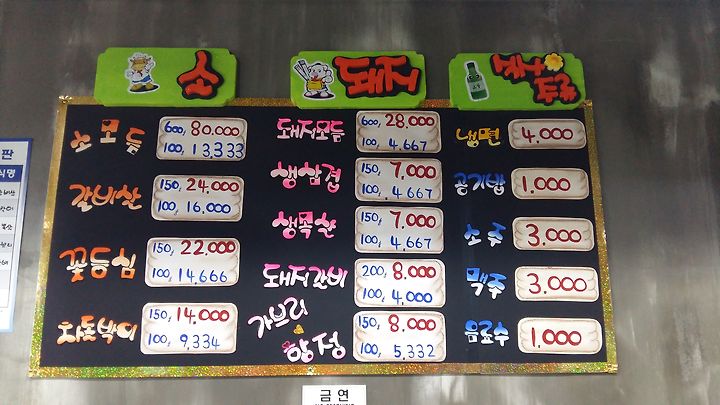 소
소모듬 600, 80.000
100, 13,333
갈비살 150, 24.000
100, 16.000
꽃등심 150, 22.000
100, 14,666
차돌박이 150, 14.000
100, 9,334
돼지
돼지모듬 600, 28.000
100, 4,667
생삼겹 150, 7,000
100, 4,667
생목살 150, 7.000
100, 4,667
돼지갈비 200, 8.000
100, 4,000
가브리
항정 150, 8.000
100, 5,332
냉면 4.000
공기밥 1.000
소주 3.000
맥주 3.000
음료수 1.000
판
금 연